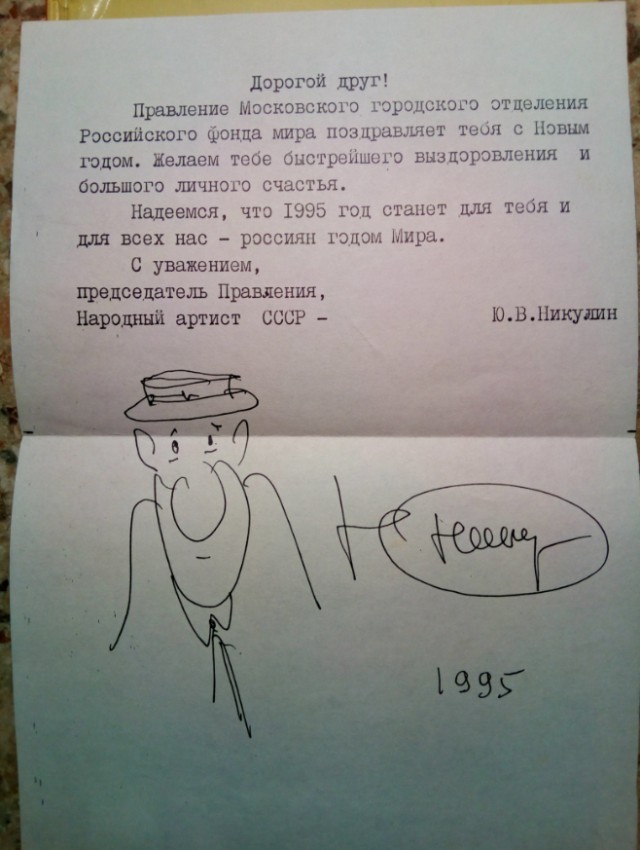 Дорогой друг!
Правление Московского городского отделения
Российского фонда мира поздравляет тебя с Новым
годом. Желаем тебе быстрейшего выздоровления и
большого личного счастья.
Надеемся, что I995 год станет для тебя и
для всех нас – россиян годом Мира.
С уважением,
председатель Правления,
Народный артист СССР –
Ю.В.Никулин
1995